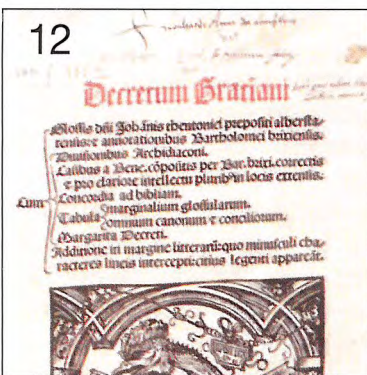 12
Decretum Gratiani
Glossis dñi Johãnis theutonici prepositi alberstatensis: et annotationibus Bartholomei brixiensis.
Diuisionibus Archidiaconi.
Casibus a Bene. cõpositis per Bar. brixi. correctis
et pro clariore intellectu pluribꝰ in locis extensis.
Cum
Concordia ad bibliam.
Tabula
marginalium glossularum.
omnium canonum et conciliorum.
Margarita Decreti.
Additione in margine litterarũ: quo minusculi characteres lineis intercepti: citius legenti appareãt.